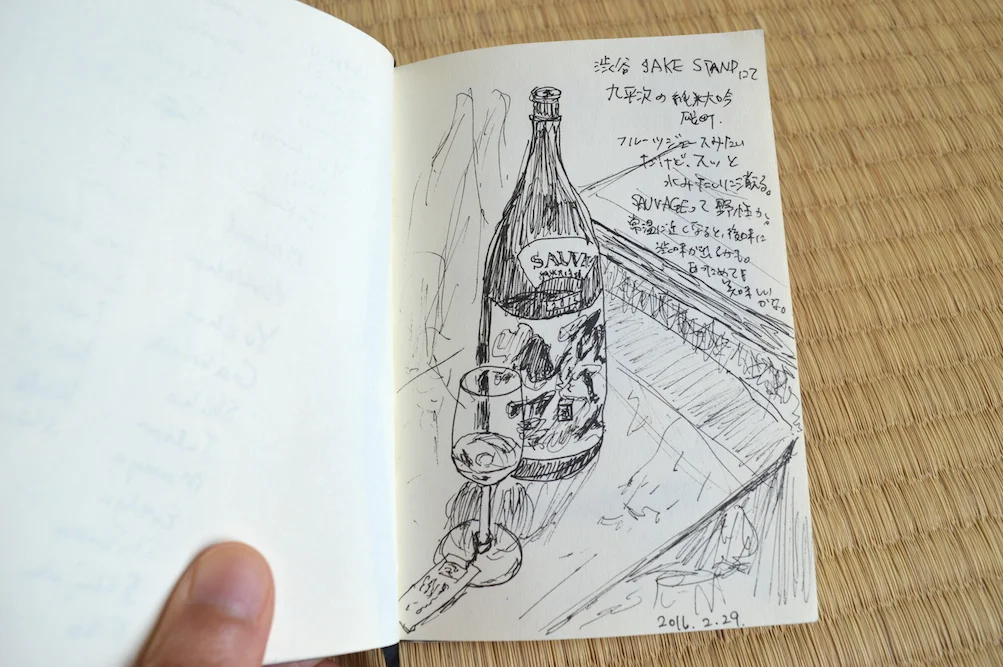 渋谷 SAKE STANDにて
九平次の純米大吟
雄町.
フルーツジュースみたい
だけど、スッと
水みたいに散る。
SAUVAGEって野性か。
常温に近くなると、後味に
渋味が出るかも。
美味しい
かな。
SAUV
2016. 2. 29.